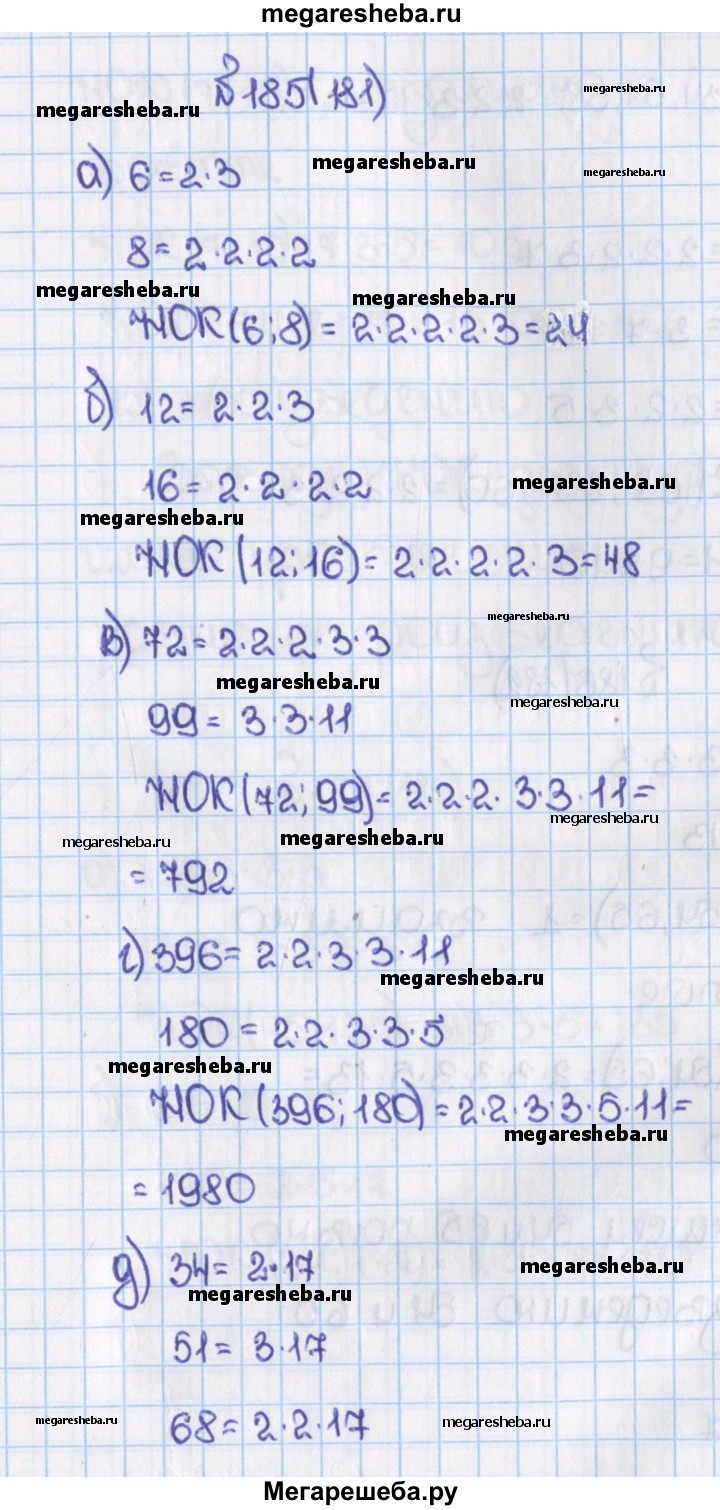 megaresheba.ru
№185(181)
megaresheba.ru
megaresheba.ru
megaresheba.ru
а) 6=2·3
megaresheba.ru
8= 2·2·2·2
megaresheba.ru
megaresheba.ru
НОК(6;8)= 2·2·2·2·3=24
б) 12= 2·2·3
16= 2·2·2·2
megaresheba.ru
megaresheba.ru
НОК(12;16)= 2·2·2·2·3=48
megaresheba.ru
в) 72= 2·2·2·3·3
megaresheba.ru
99= 3·3·11
megaresheba.ru
НОК(72; 99)= 2·2·2·3·3·11=
megaresheba.ru
megaresheba.ru
megaresheba.ru
= 792
г) 396= 2·2·3·3·11
megaresheba.ru
180= 2·2·3·3·5
megaresheba.ru
НОК(396; 180)=2·2·3·3·5·11=
megaresheba.ru
= 1980
д) 34= 2·17
megaresheba.ru
megaresheba.ru
51= 3·17
68= 2·2·17
megaresheba.ru
megaresheba.ru
Мегарешеба.ру